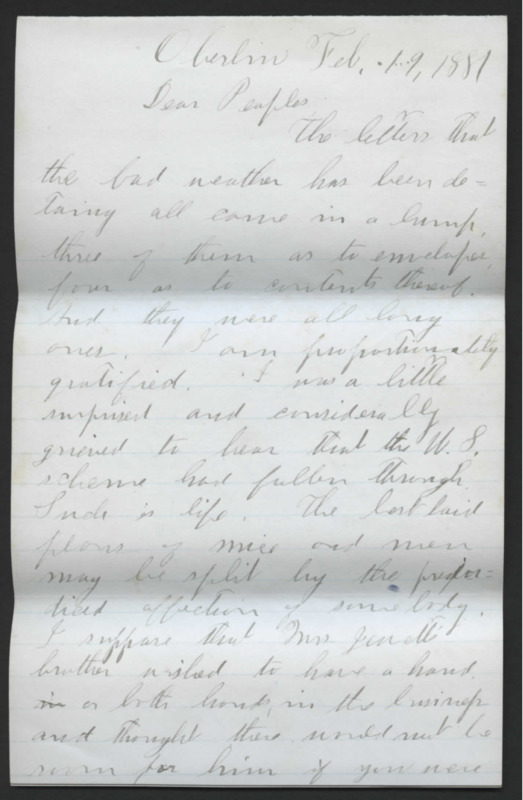 Oberlin Feb. 19, 1881
Dear Peoples
The letters that
the bad weather has been de=
taing all came in a lump,
three of them as to envelopes,
four as to contents thereof.
And they were all long
ones. I am proportionately
gratified. I was a little
surprised and considerally
grieved to hear that the W. S.
scheme had fallen through.
Such is life. The best laid
plans of mice and men
may be split by the
affection of somebody.
I suppose that Mrs
brother wished to have a hand
in or both hands, in the business
and thought there would not be
room for him if you were